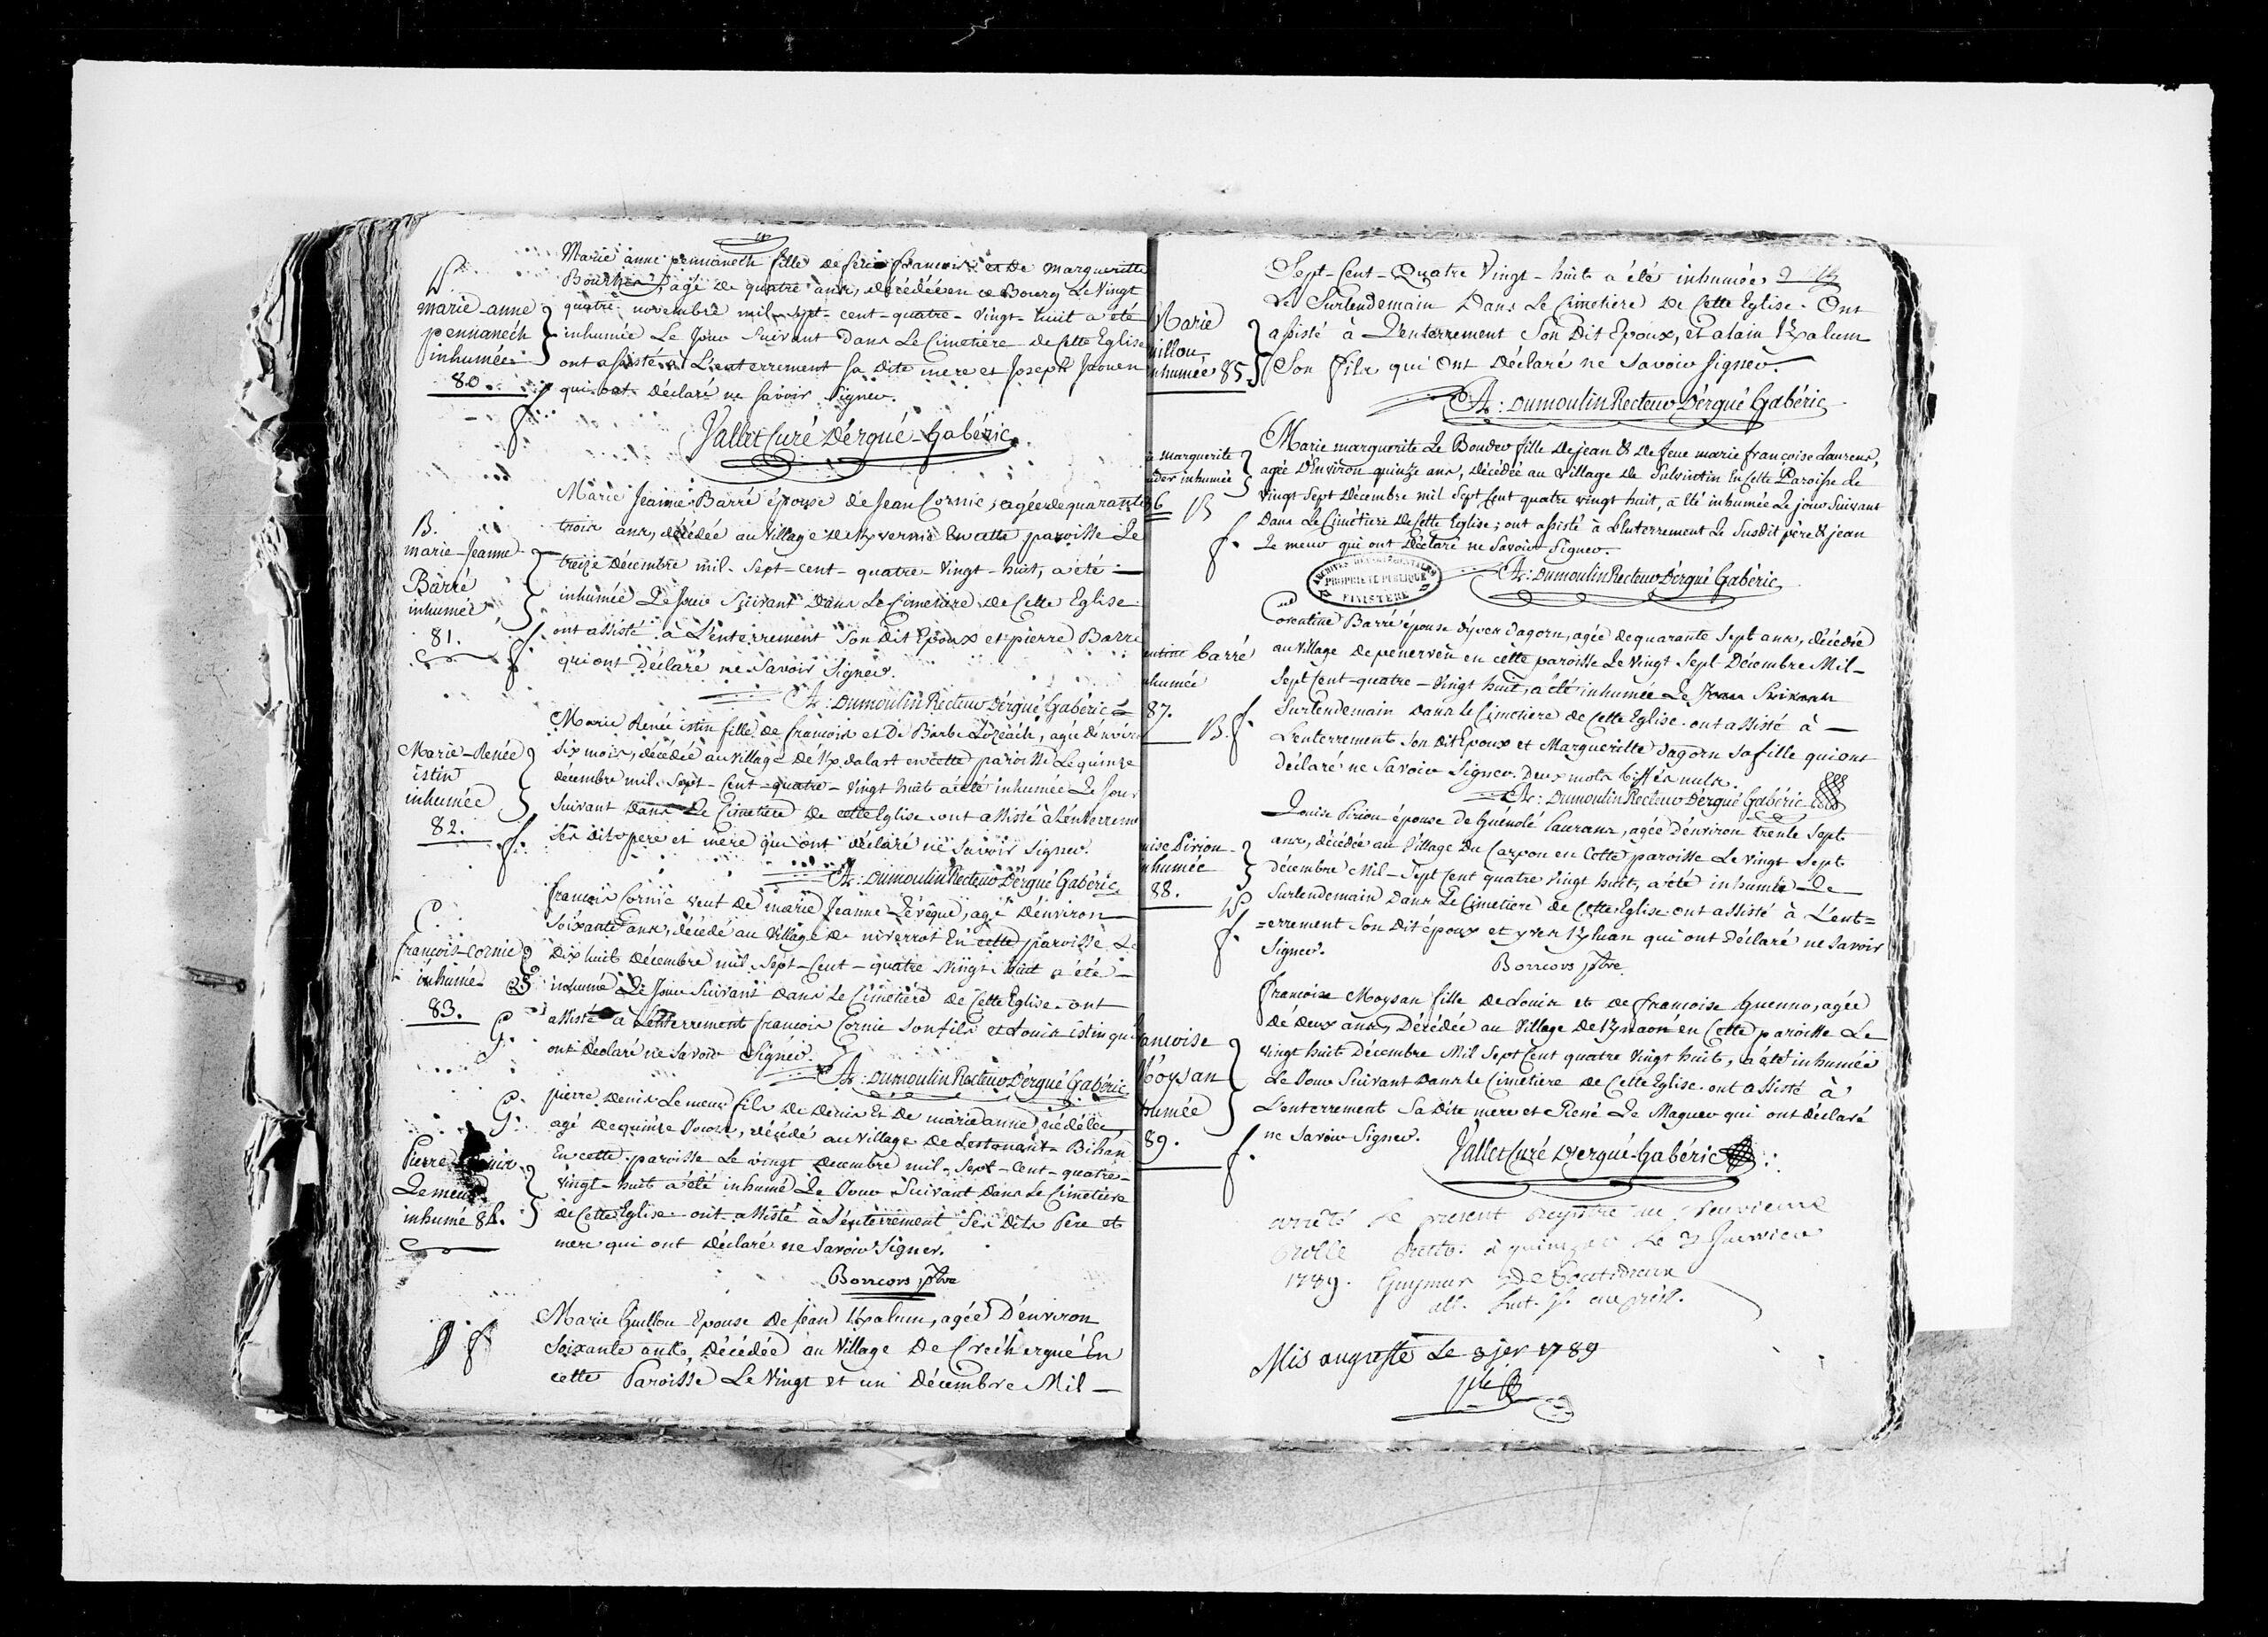 Marie anne pennanech fille de feu francois et de margueritte
agé de quatre ans, décédée en ce Bourg Le vingt
quatre novembre mil-sept-cent-quatre-vingt-huit a été
inhumée Le jour Suivant Dans Le Cimetiere de Cette Eglise
ont assisté a L'enterrement sa Dite mere et Joseph Jaouen
qui ont Déclaré ne savoir Signer.
marie-anne
pennanech
inhumée
80.
Vallet Curé D'ergué-Gabéric
Marie Jeanne Barré épouse de Jean Cornic, agée de quarante
trois ans, décédée au Village de Kvernic En cette paroisse Le
treize décembre mil-Sept-cent-quatre-Vingt-huit, a été
inhumée Le Jour Suivant Dans Le Cimetiere de Cette Eglise
ont assisté à L'enterrement Son Dit Epoux et pierre Barré
qui ont Déclaré ne Savoir Signer.
B.
marie-Jeanne
Barré
inhumée
81.
A: Dumoulin Recteur D'ergué Gabéric
Marie Renée istin fille de francois et De Barbe Lozeach, agée d'environ
Six mois, décédée au Village de Kdalast en cette paroisse Le quinze
décembre mil-Sept-Cent-quatre-Vingt huit a été inhumée Le Jour
Suivant Dans Le Cimetiere De cette Eglise. ont assisté à L'enterrement
ses Dits pere et mere qui ont déclaré ne Savoir Signer.
Marie-Renée
istin
inhumée
82.
A: Dumoulin Recteur D'ergué Gabéric
francois Cornic veuf de marie Jeanne Lévêque, agé D'environ
Soixante ans, décédé au Village de niverrot En cette paroisse Le
Dix huit Décembre mil-Sept-Cent-quatre Vingt huit a été
inhumé Le Jour Suivant Dans Le Cimetiere De Cette Eglise. ont
assisté a L'enterrement francois Cornic Son fils et Louis istin qui
ont Déclaré ne Savoir Signer.
C.
francois-Cornic
inhumé
83.
G.
A: Dumoulin Recteur D'ergué Gabéric
pierre Denis Le meur fils De Denis Et De marie anne nédélec,
agé De quinze Jours, décédé au Village de Lestonant-Bihan
En cette paroisse Le vingt Decembre mil-Sept-Cent-quatre-
Vingt-huit a été inhumé Le Jour Suivant Dans Le Cimetiere
de Cette Eglise. ont assisté à L'enterrement Ses Dits Pere et
mere qui ont Déclaré ne Savoir Signer.
G.
Pierre Denis
Le meur
inhumé 84.
Borrcors ptre
Marie Guillou Epouse De Jean Kalum, agée D'environ
Soixante ans, Décédée au Village De Créhergué En
cette Paroisse Le Vingt et un Décembre Mil-
Sept-Cent-Quatre Vingt-huit a été inhumée
Le Surlendemain Dans Le Cimetiere De Cette Eglise. Ont
assisté à L'enterrement Son Dit Epoux, et alain Kalum
Son fils qui Ont Déclaré ne Savoir Signer.
Marie
uillou
nhumée 85.
A: Dumoulin Recteur D'ergué Gabéric
Marie marguerite Le Bouder fille De jean & De feue marie françoise Laurens,
agée D'environ quinze ans, décédée au Village De Sulvintin En Cette Paroisse Le
Vingt Sept Décembre mil Sept Cent quatre vingt huit, a été inhumée Le jour Suivant
Dans Le Cimétiere De Cette Eglise; ont assisté à L'enterrement Le Susdit père & jean
Le meur qui ont Déclaré ne Savoir Signer.
marguerite
uder inhumée
86
B
ARCHIVES DÉPARTEMENTALES
PROPRIÉTÉ PUBLIQUE
FINISTÈRE
A: Dumoulin Recteur D'ergué Gabéric
Corentine Barré épouse d'yves Dagorn, agée de quarante Sept ans, décédée
au Village de penerven en cette paroisse Le Vingt Sept Décembre Mil-
Sept Cent-quatre-Vingt huit, a été inhumée Le Jour Suivant
Surlendemain Dans Le Cimetiere de Cette Eglise. ont assisté à
L'enterrement Son Dit Epoux et Margueritte Dagorn Sa fille qui ont
déclaré ne Savoir Signer. Deux mots biffés nuls.
entine barré
nhumée
87.
B.
A: Dumoulin Recteur D'ergué Gabéric
Louise Pirion épouse de Guénolé Laurans, agée d'environ trente Sept
ans, décédée au Village Du Carpon en Cette paroisse Le Vingt Sept
décembre Mil-Sept Cent quatre Vingt huit, a été inhumée Le
Surlendemain Dans Le Cimetiere de Cette Eglise. ont assisté à L'ent=
=errement Son Dit époux et yves Kluan qui ont Déclaré ne Savoir
Signer.
uise Pirion
nhumée
88.
Borrcors ptre
françoise Moysan fille de Louis et de francoise Guenno, agée
De Deux ans, Décédée au Village de Knaon en Cette paroisse Le
Vingt huit Décembre Mil Sept Cent quatre Vingt huit, a été inhumée
Le Jour Suivant Dans Le Cimetiere de Cette Eglise. ont assisté à
L'enterrement Sa Dite mere et René Le Maguer qui ont Déclaré
ne Savoir Signer.
ancoise
Moysan
humée
89.
Vallet Curé D'ergué-Gabéric
arrêté le present Registre au Neuvieme
Rolle à quimper Le 2 Janvier
1789.
Mis au greffe Le 3 jer 1789